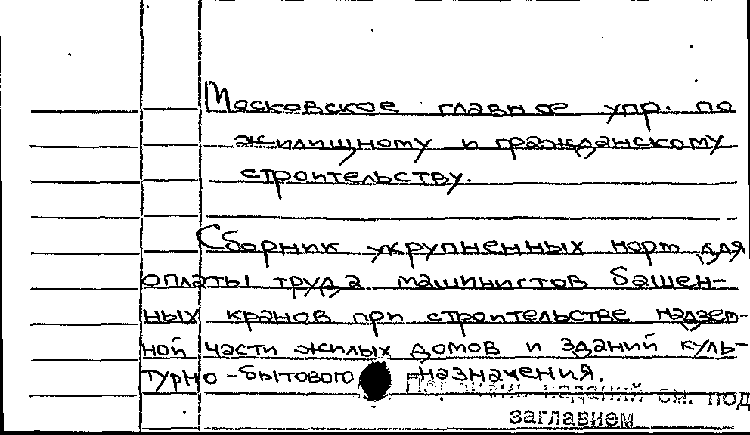 Московское главное упр. по
жилищному и гражданскому
строительству.
Сборник укрупненных норм для
оплаты труда машинистов башен-
ных кранов при строительстве надзем-
ной части жилых домов и зданий куль-
турно-бытового назначения.
изданий см. под
заглавием